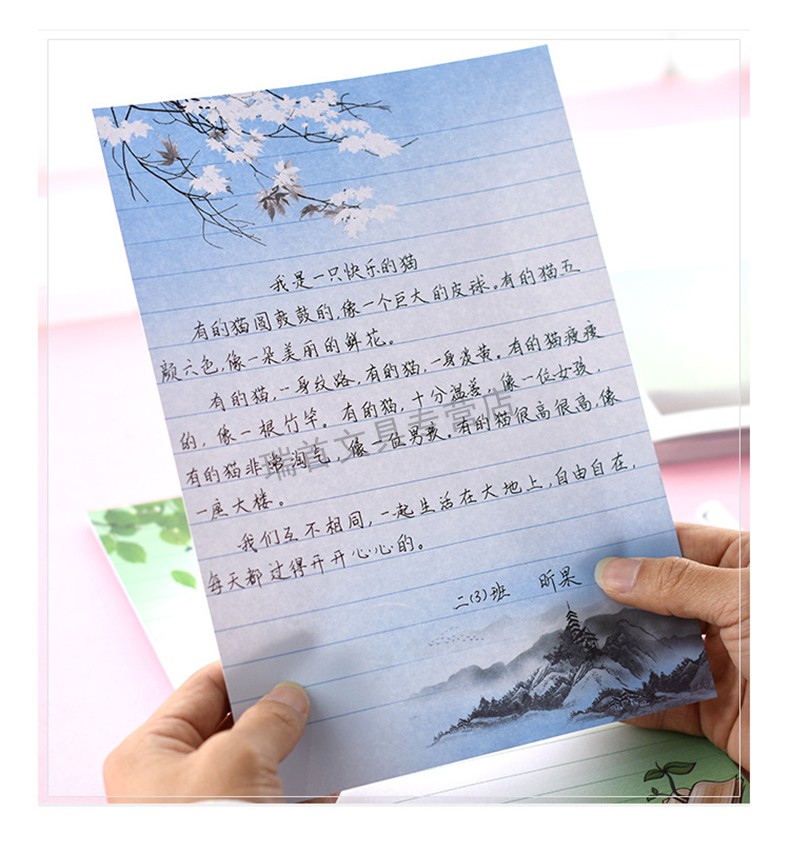 我是一只快乐的猫
有的猫圆鼓鼓的,像一个巨大的皮球。有的猫五
颜六色,像一朵美丽的鲜花。
有的猫,一身纹路,有的猫,一身淡黄。有的猫瘦瘦
的,像一根竹竿。有的猫,十分温善,像一位女孩,
有的猫非常淘气,像一位男孩。有的猫很高很高,像
一座大楼。
我们互不相同,一起生活在大地上,自由自在,
每天都过得开开心心的。
二(3)班 昕果
瑞首文具专营店